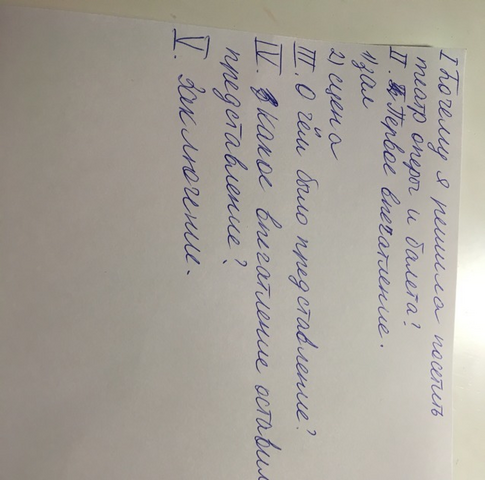 I Почему я решила посетить
театр оперы и балета?
II. Первое впечатление.
1) зал
2) сцена
III. О чём было представление?
IV. Какое впечатление оставил
представление?
V. Заключение.